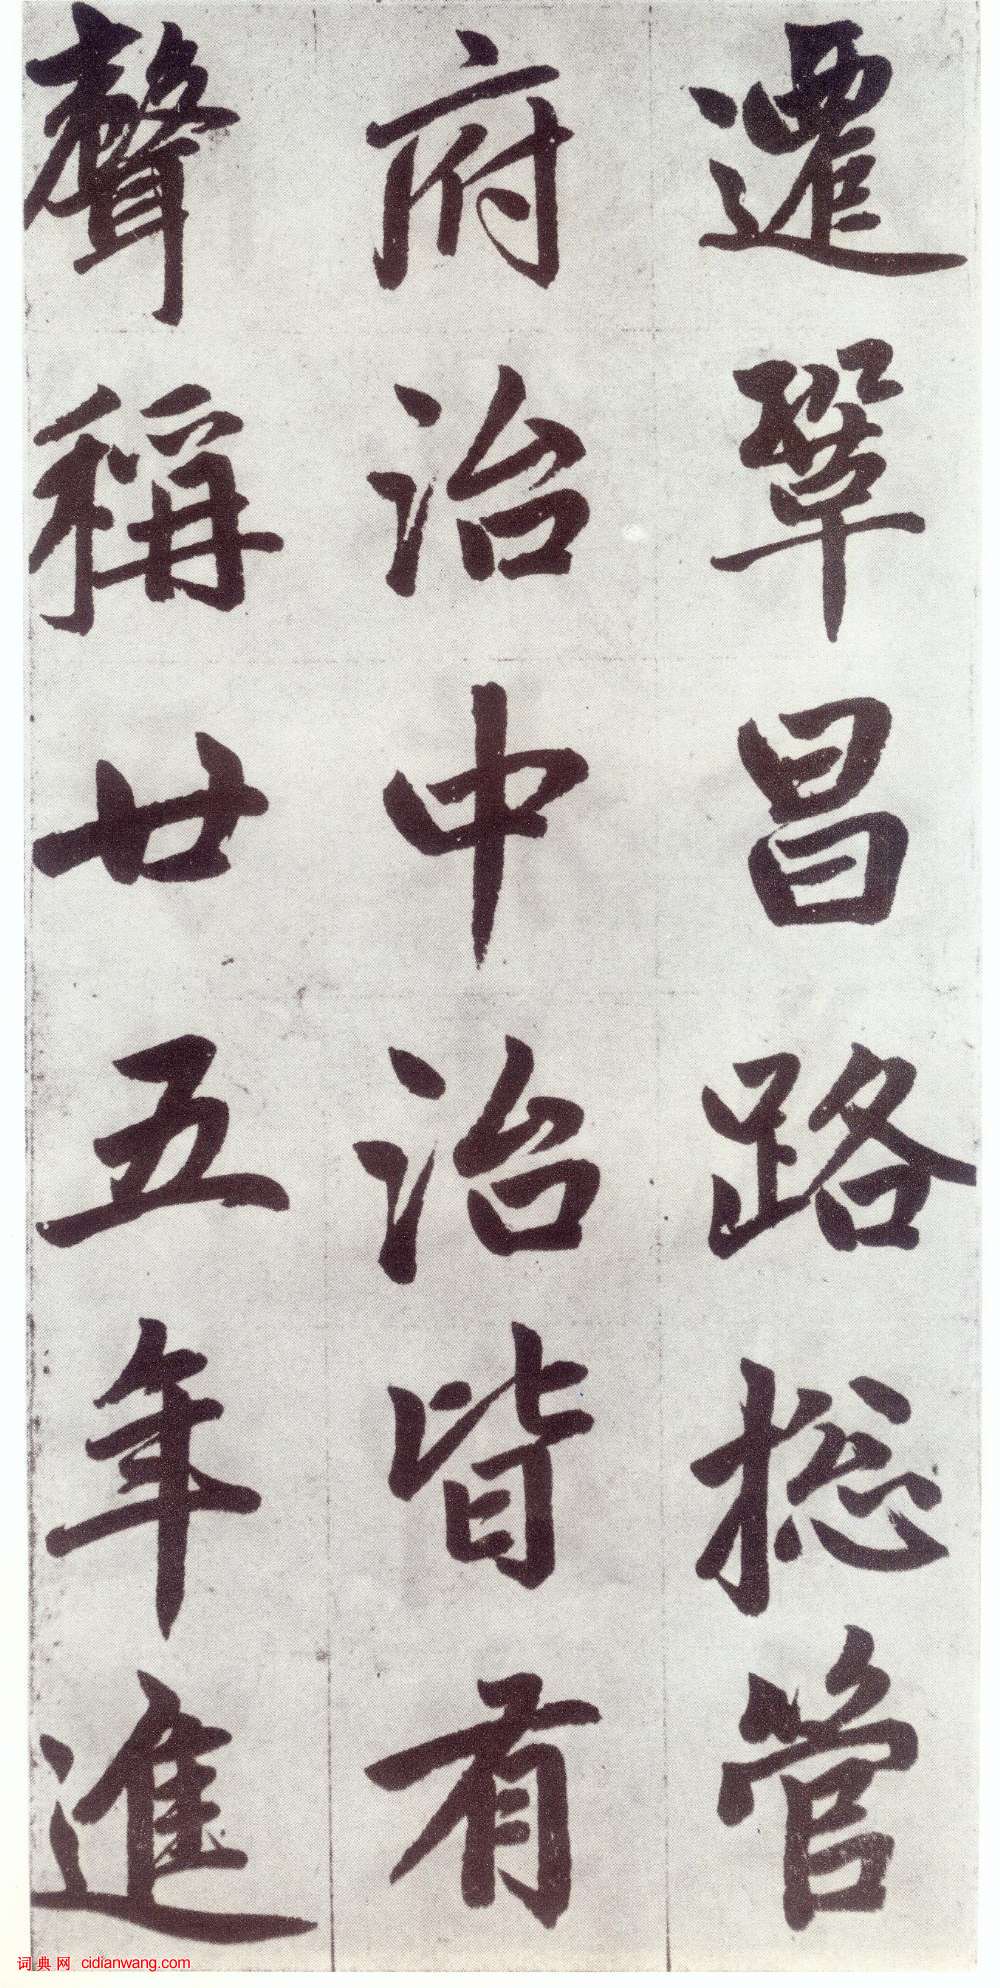 遷鞏昌路捴管
府治中治皆有
聲稱廿五年進
词典网 cidianwang.com